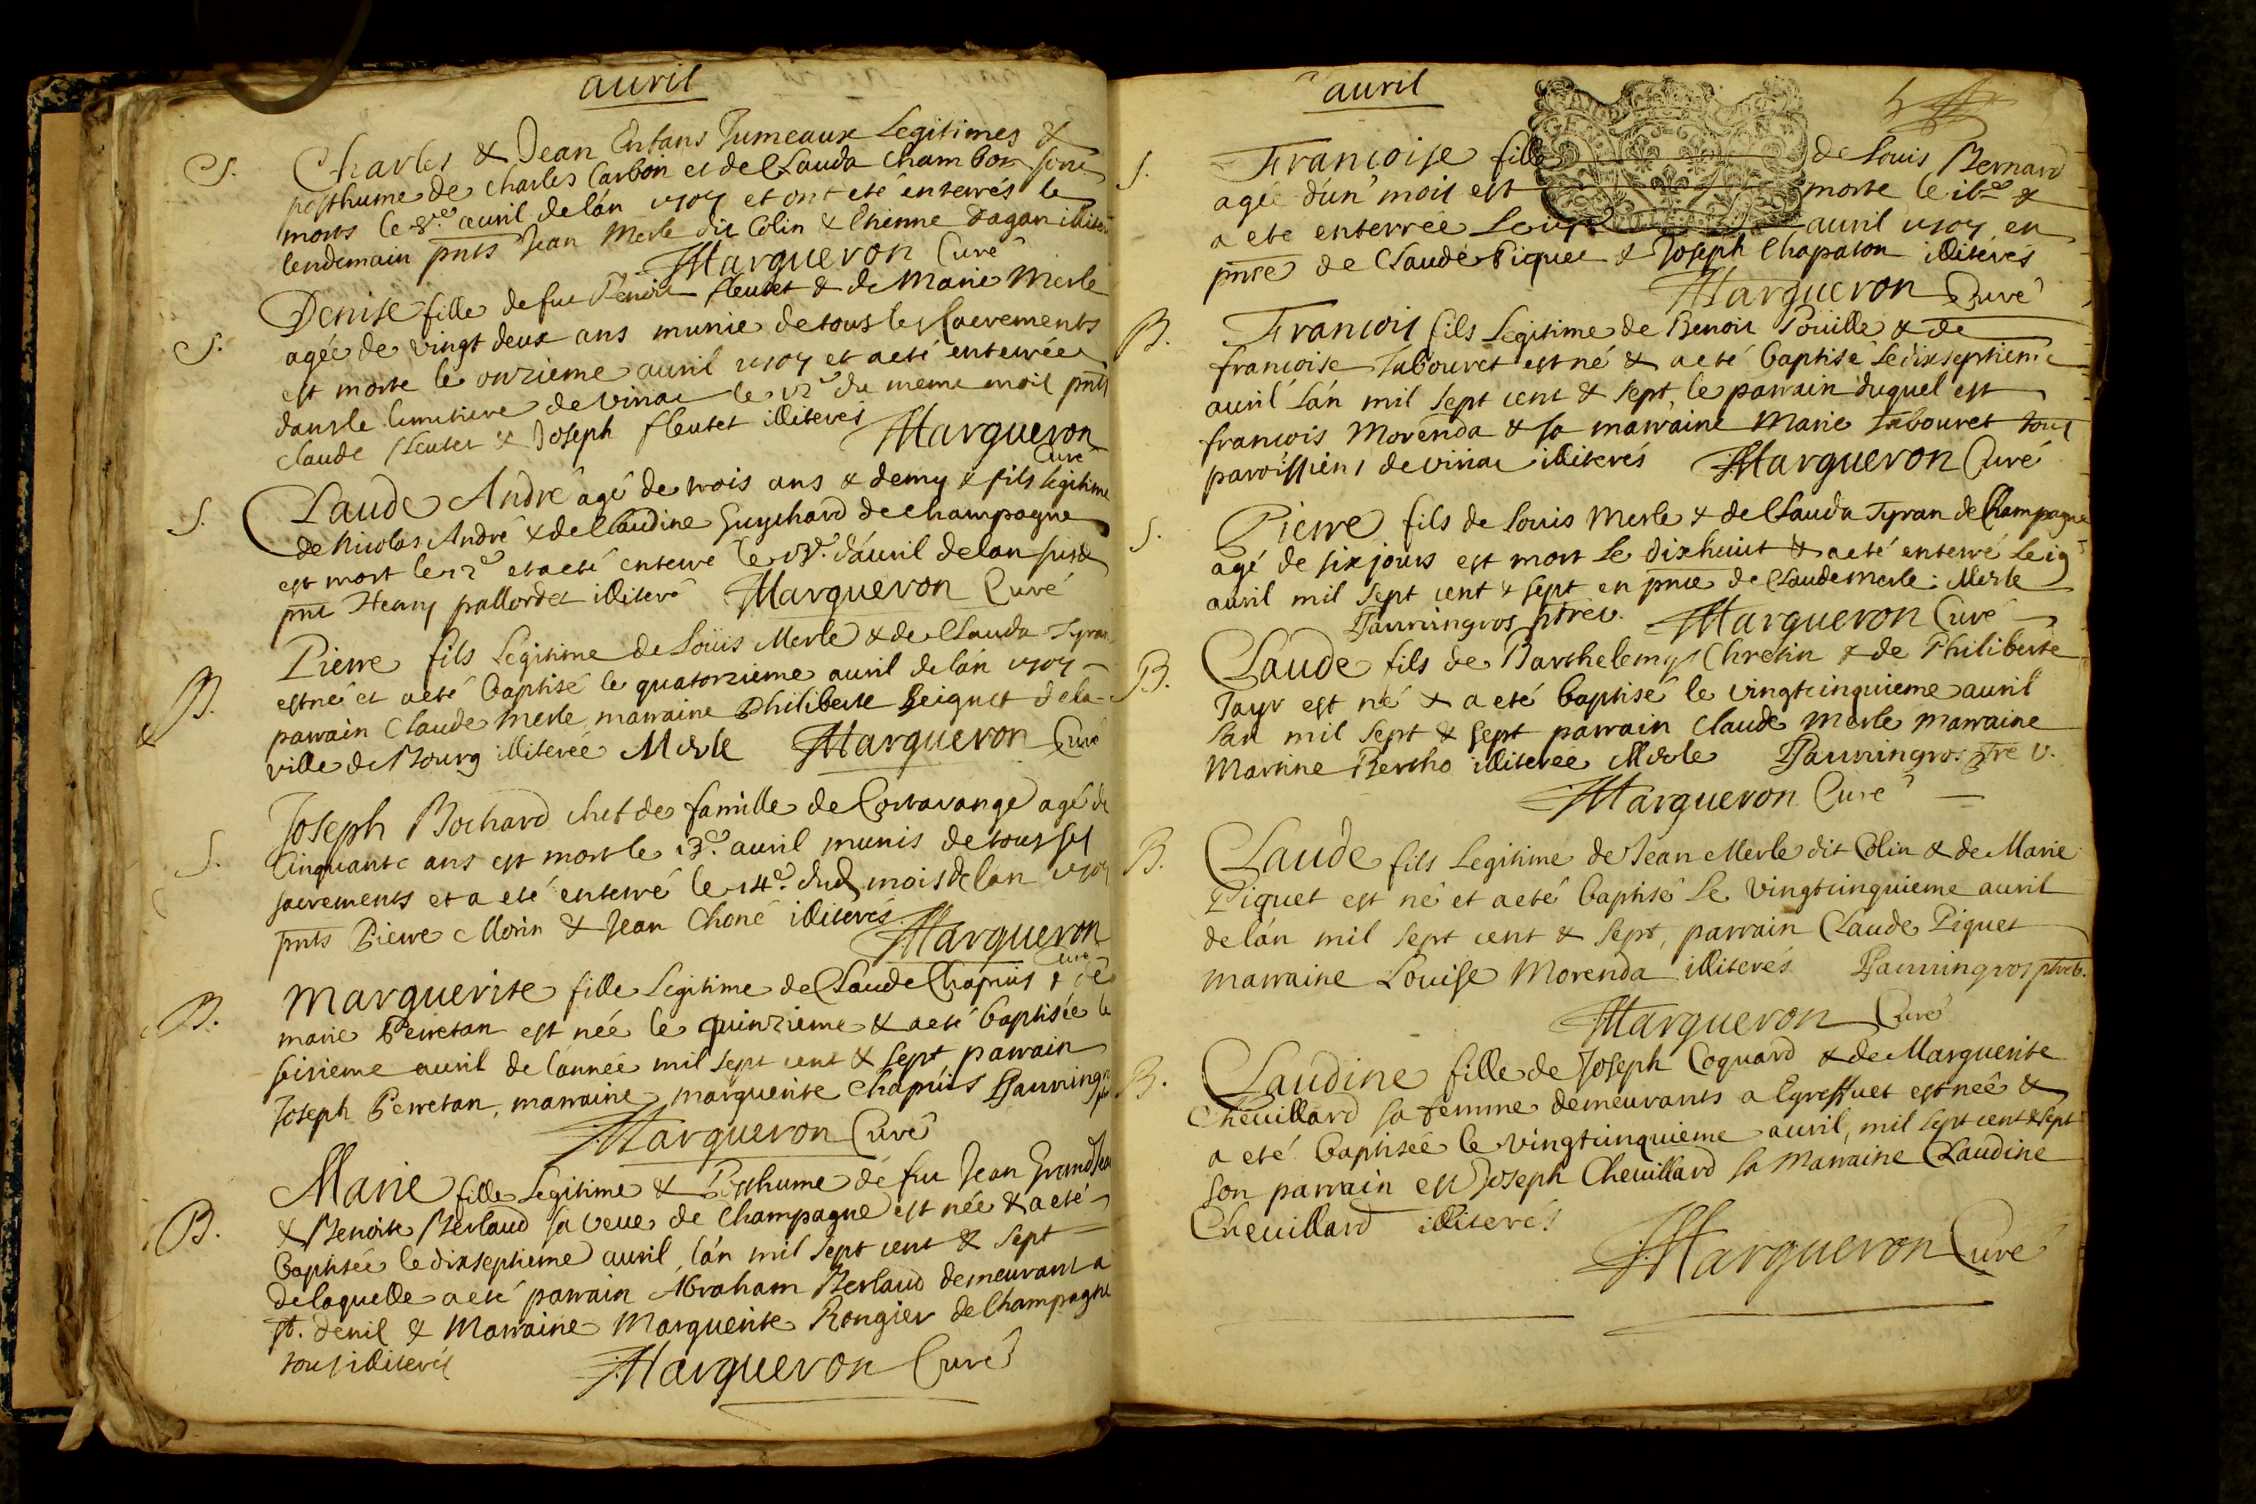 auril
S.
Charles & Jean Enfans Jumeaux Legitimes &
posthume de Charles Carbon et de Clauda Chambon sont
morts le 8.e auril de lán 1707 et ont eté enterrés le
lendemain pnts Jean Merle dit Colin & Etienne dagan
Margueron Curé
S.
Denise fille de feu fleutet & de Marie Merle
agée de vingt deux ans munie de tous les sacrements
est morte le onzieme auril 1707 et a eté enterrée
dans le cimitiere de viriac le 12e du meme mois pnts
Claude fleutet & Joseph fleutet illiterés
Margueron
Curé
S.
Claude André agé de trois ans & demy & fils legitime
de Nicolas André & de Claudine Guychard de champagne
est mort le 12e et a eté enterré le 13e. d'auril de lan susd
pnt Henry pallordet illiteré Margueron Curé
B.
Pierre fils Legitime de Loüis Merle & de Clauda Tyran
est né et a eté baptisé le quatorzieme auril de lán 1707
parrain Claude Merle marraine Philiberte Beiguet de la
ville de Bourg illiterée Merle Margueron Curé
S.
Joseph Bochard chef de famille de Cortavange agé de
Cinquante ans est mort le 13.e auril munis de tous ses
sacrements et a eté enterré le 14e. dud mois de lan 1707
pnts Pierre Morin & Jean Choné illiterés
Margueron
Curé
B.
Marguerite fille Legitime de Claude Chapuis & de
marie Perretan est née le quinzieme & a eté baptisée le
seizieme auril de lánnée mil sept cent & sept parrain
Joseph Perretan, marraine marguerite Chapuis
Margueron Curé
B.
Marie fille Legitime & Posthume de feu Jean Grandjean
& Benoite Berlaud sa veue de Champagne est née & a eté
baptisée le dixseptieme auril, lán mil sept cent & sept
de laquelle a eté parrain Abraham Berlaud demeurant a
st. denil & Marraine Marguerite Rongier de Champagne
tous illiterés Margueron Curé
auril
S.
Francoise fille de Louis Bernard
agée d'un mois est morte le 16e &
a ete enterrée Le 17 auril 1707 en
pnce de Claude Piquet & Joseph Chapaton illiterés
Margueron Curé
B.
Francois fils Legitime de Benoit Poüille & de
francoise Tabouret est né & a eté baptisé Le dixseptieme
auril lán mil sept cent & sept, le parrain duquel est
francois Morenda & sa marraine Marie Tabouret tous
paroissiens de viriac illiterés Margueron Curé
S.
Pierre fils de Louis Merle & de Clauda Tyran de Champagne
agé de six jours est mort Le dixhuict & a eté enterré Le 19
auril mil sept cent & sept en pnce de Claude Merle. Merle
Pauvringros ptre v. Margueron Curé
B.
Claude fils de Barthelemy Chretin & de Philiberte
Jayr est né & a eté baptisé le vingtcinquieme auril
lan mil sept & sept parrain Claude Merle marraine
Martine Bertho illiterée Merle Pauvringros ptre v.
Margueron Curé
B.
Claude fils Legitime de Jean Merle dit Colin & de Marie
Piquet est né et a eté baptisé Le vingtcinquieme auril
de lán mil sept cent & sept, parrain Claude Piquet
marraine Louise Morenda illiterés Pauvringros ptre v.
Margueron Curé
B.
Claudine fille de Joseph Coquard & de Marguerite
Cheuillard sa femme demeurants a Egreffuet est neé &
a eté baptisée le vingtcinquieme auril, mil sept cent & sept
son parrain est Joseph Cheuillard sa Marraine Claudine
Cheuillard illiterés
Margueron Curé